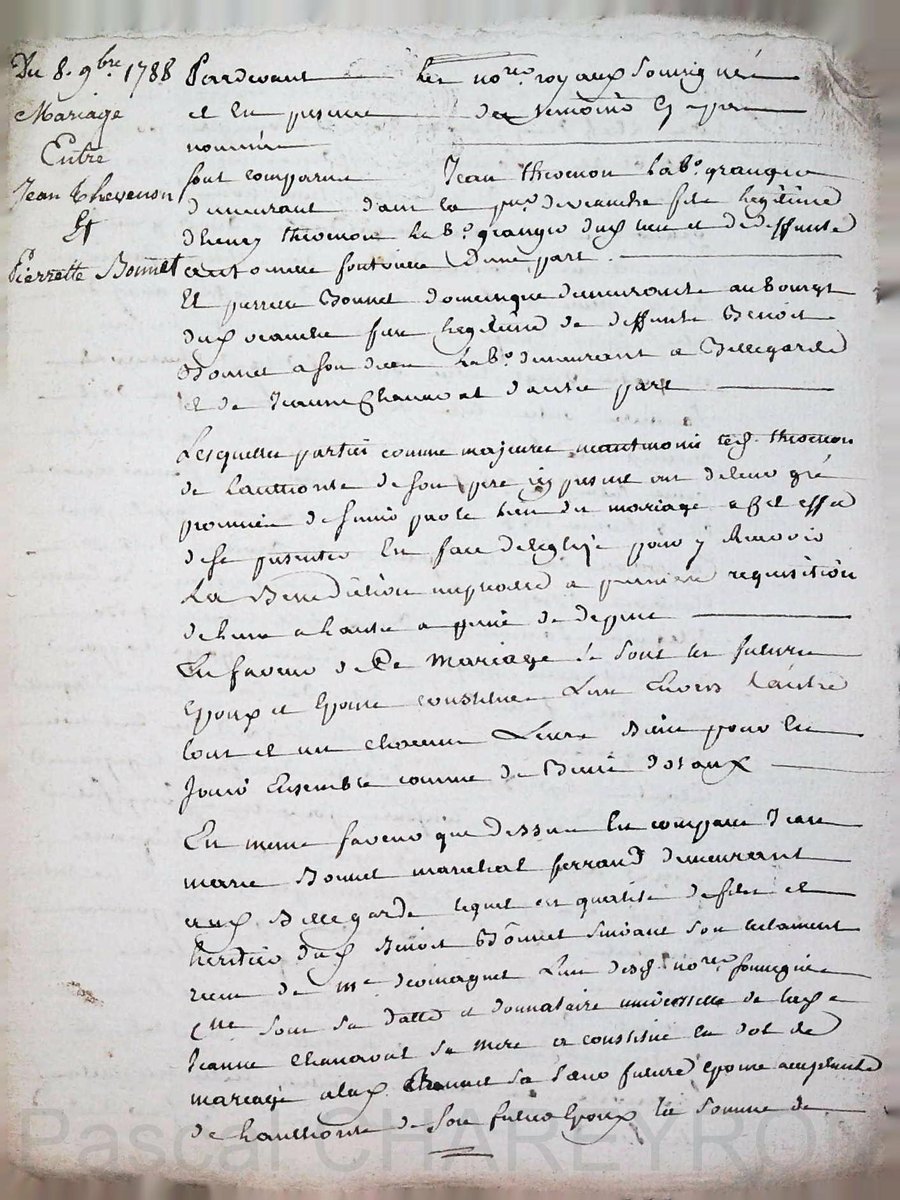 Du 8. 9bre 1788
Mariage
Entre
Jean Thevenon
Et
Pierrette Bonnet
Pardevant les nores royaux soussignés
et en presence des temoins cy apres
nommés
sont comparus Jean thevenon labr. granger
demeurant dans la psse de veauche fils legitime
d'henry thevenon labr. granger dud. lieu et de deffunte
d'une part.
Et pierrette Bonnet domestique demeurante au Bourg
dud. veauche fille legitime de deffunt Benoit
Bonnet a son deces labr. demeurant a Bellegarde
et de Jeanne Chanavat d'autre part
Lesquelles parties comme majeures neantmoins led. thevenon
de l'authorité de son pere icy present ont de leur gré
promis de s'unir par le lien du mariage a cet effet
de se presenter en face de l'eglise pour y recevoir
La Benediction nuptialle a premiere requisition
de l'une a l'autre a peine de depens
En faveur de Ce mariage se sont les futurs
epoux et epouse constitués l'un envers l'autre
tout et un chacuns leurs Biens pour en
jouir Ensemble comme de Biens dotaux
En meme faveur que dessus est comparu Jean
marie Bonnet marechal ferrand demeurant
aud. Bellegarde lequel en qualité de fils et
heritier dud. Benoit Bonnet suivant son testament
recu de me l'un desd. nores soussignés
sous sa datte et donnataire universelle de lad.
Jeanne Chanavat sa mere a constitué en dot de
mariage a lad. Bonnet sa sœur future epouse acceptante
de l'authorité de son futur epoux la somme de
Pascal CHAREYRON